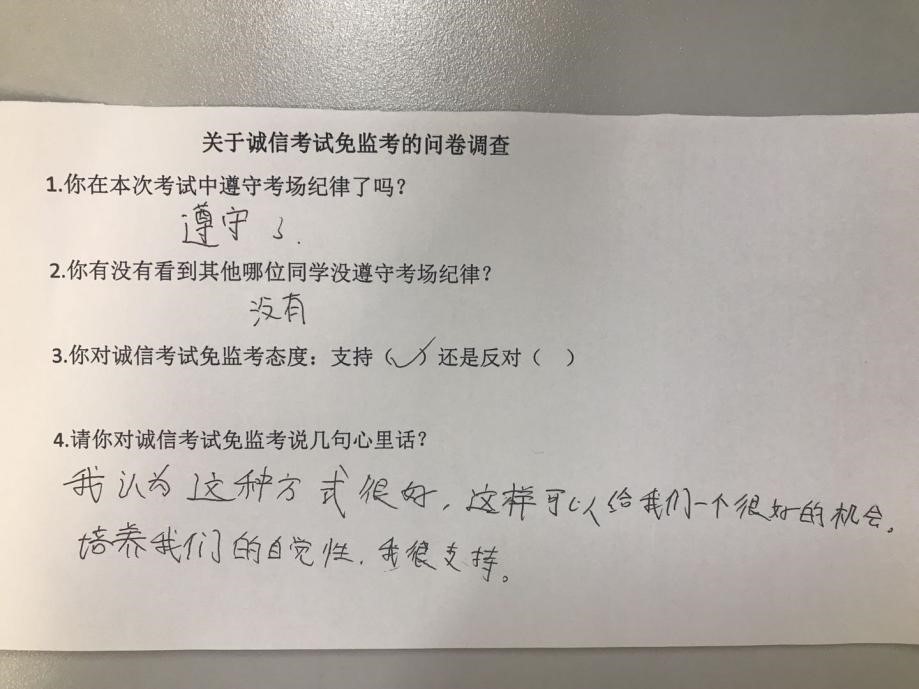 关于诚信考试免监考的问卷调查
1.你在本次考试中遵守考场纪律了吗？
遵守了.
2.你有没有看到其他哪位同学没遵守考场纪律？
没有
3.你对诚信考试免监考态度：支持（✓）还是反对（ ）
4.请你对诚信考试免监考说几句心里话？
我认为这种方式很好，这样可以给我们一个很好的机会，
培养我们的自觉性，我很支持。